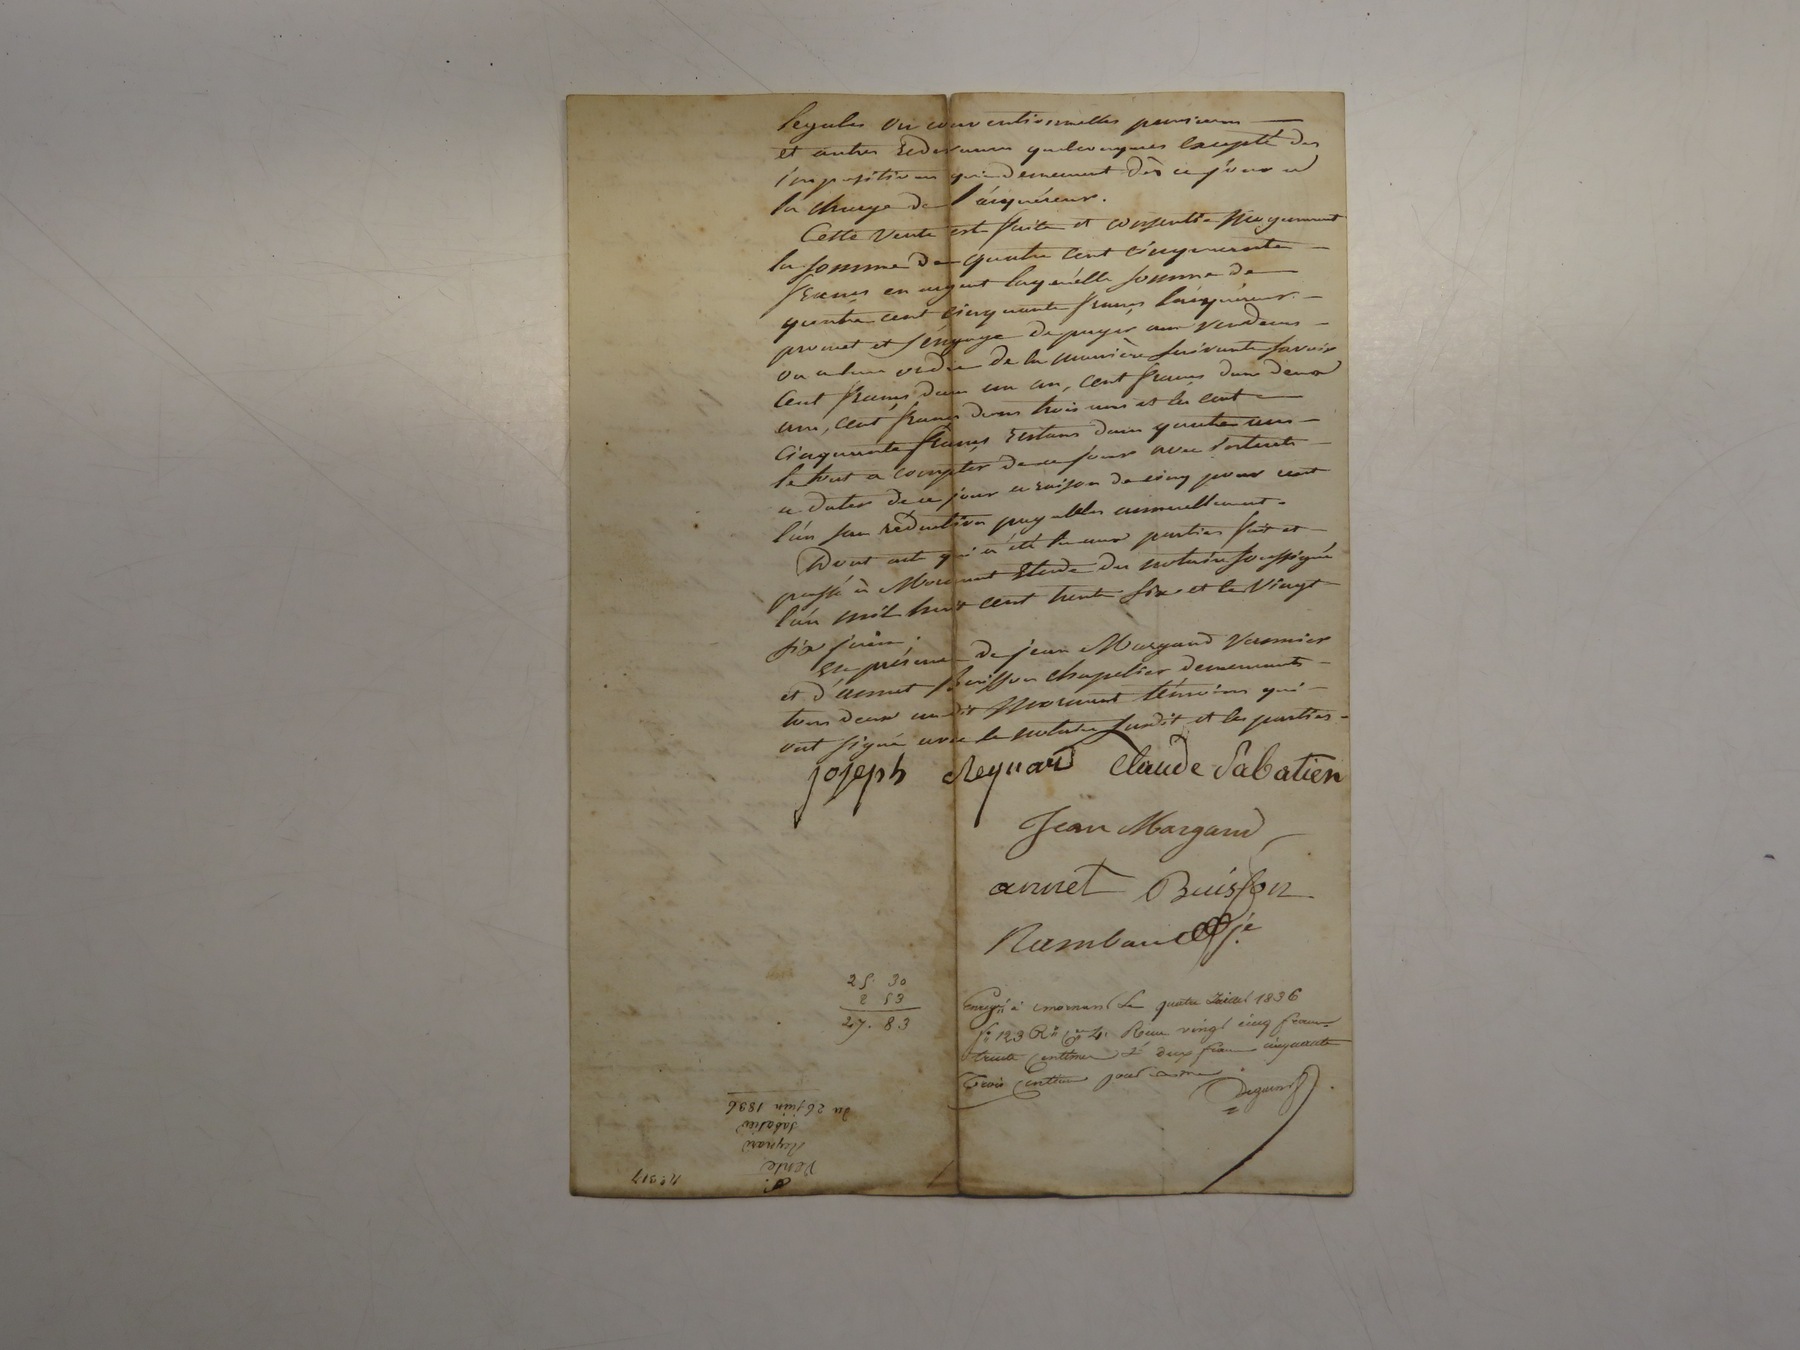 legales ou conventionnelles pensions
et autres redevances quelconques excepté des
impositions qui demeurent dès ce jour a
la charge de l'aiquéreur.
Cette vente est faite et consentie moyennant
la somme de quatre cent cinquante
francs en argent laquelle somme de
quatre cent cinquante francs l'aiquéreur
promet et s'engage de payer aux vendeurs
ou a leur ordre de la manière suivante savoir
Cent francs dans un an, cent francs dans deux
ans, cent francs dans trois ans et les cent
cinquante francs restans dans quatre ans
le tout a compter de ce jour avec intérets
a dater de ce jour a raison de cinq pour cent
l'an sans réduction payables annuellement.
Dont acte qui a été lu aux parties fait et
passé à Mornant Etude du notaire soussigné
l'an mil huit cent trente six et le vingt
six juin.
En présence de jean Margand
et d'annet Buisson chapelier demeurants
tous deux audit Mornant témoins qui
ont signé avec le notaire susdit et les parties
joseph Reynard Claude Sabatier
Jean Margand
annet Buisson
Rambaud
25. 30
2 53
27. 83
Enregé à mornant Le quatre Juillet 1836
fo 123 Ro Ce 4. Recu vingt cinq francs
trente Centimes et deux francs cinquante
trois Centimes pour
No 317
Vente
Reynard
Sabatier
du 26 juin 1836